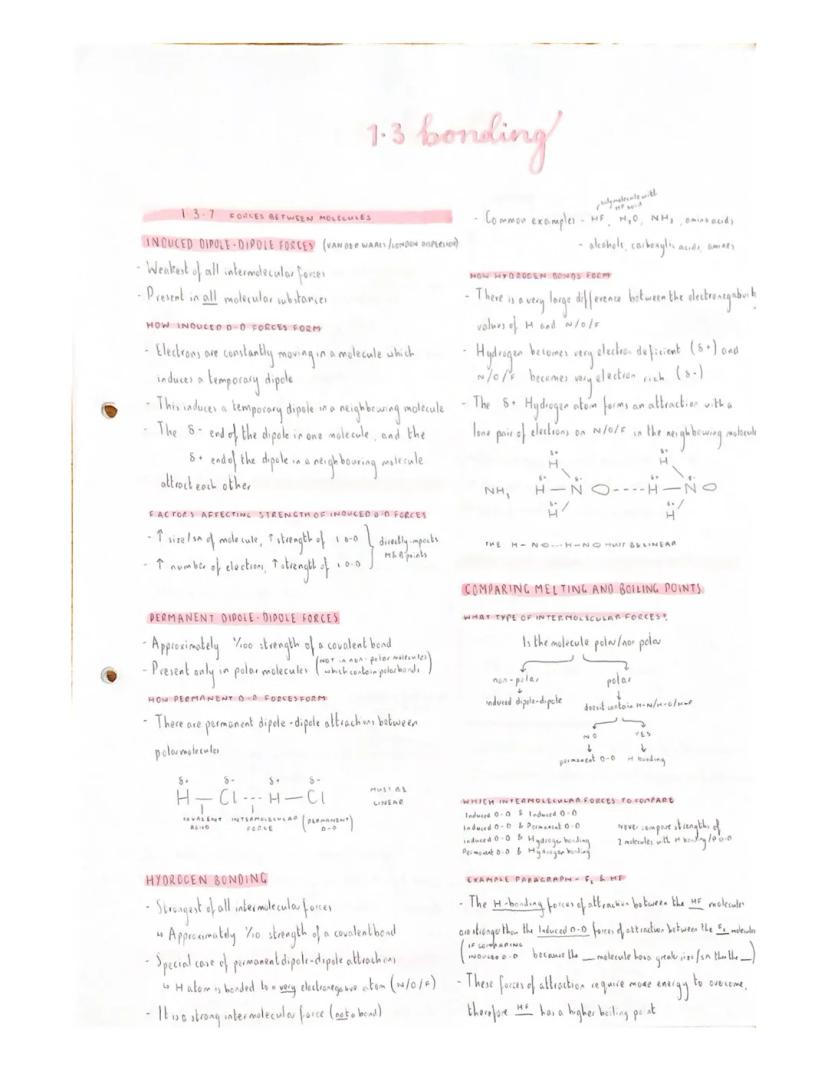 1.3 bonding
1.3.7 FORCES BETWEEN MOLECULES
INDUCED DIPOLE-DIPOLE FORCES (VAN DER WAALS/LONDON DISPERSION)
- Weakest of all intermolecular forces
- Present in all molecular substances
HOW INDUCED D-D FORCES FORM
- Electrons are constantly moving in a molecule which
induces a temporary dipole
- This induces a temporary dipole in a neighbouring molecule
- The δ- end of the dipole in one molecule, and the
δ+ end of the dipole in a neighbouring molecule
attract each other
FACTORS AFFECTING STRENGTH OF INDUCED D-D FORCES
- ↑ size/sa of molecule, ↑ strength of I D-D
- ↑ number of electrons, ↑ strength of I D-D
directly impacts
M&B points
PERMANENT DIPOLE-DIPOLE FORCES
- Approximately 1/100 strength of a covalent bond
- Present only in polar molecules (NOT in non-polar molecules
which contain polar bonds)
HOW PERMANENT D-D FORCES FORM
- There are permanent dipole-dipole attractions between
polar molecules
δ+ δ- δ+ δ-
H — Cl --- H — Cl
MUST BE
LINEAR
COVALENT INTERMOLECULAR (PERMANENT)
BOND FORCE D-D
HYDROGEN BONDING
- Strongest of all intermolecular forces
↳ Approximately 1/10 strength of a covalent bond
- Special case of permanent dipole-dipole attractions
↳ H atom is bonded to a very electronegative atom (N/O/F)
- It is a strong intermolecular force (not a bond)
only molecule with
- Common examples - HF, H₂O, NH₃, amino acids
- alcohols, carboxylic acids, amines
HOW HYDROGEN BONDS FORM
- There is a very large difference between the electronegativity
values of H and N/O/F
- Hydrogen becomes very electron deficient (δ+) and
N/O/F becomes very electron rich (δ-)
- The δ+ Hydrogen atom forms an attraction with a
lone pair of electrons on N/O/F in the neighbouring molecule
δ+ δ+
H H
δ+ δ- δ+ δ-
NH₃ H — N ---- H — N
H H
δ+ δ+
THE H-N ... H-N MUST BE LINEAR
COMPARING MELTING AND BOILING POINTS
WHAT TYPE OF INTERMOLECULAR FORCES?
Is the molecule polar/non polar
non-polar polar
induced dipole-dipole does it contain H-N/H-O/H-F
NO YES
permanent D-D H bonding
WHICH INTERMOLECULAR FORCES TO COMPARE
Induced D-D & Induced D-D
Induced D-D & Permanent D-D
Induced D-D & Hydrogen bonding
Permanent D-D & Hydrogen bonding
never compare strengths of
2 molecules with H bonding/P D-D
EXAMPLE PARAGRAPH - F₂ & HF
- The H-bonding forces of attraction between the HF molecules
are stronger than the Induced D-D forces of attraction between the F₂ molecules
(IF COMPARING
INDUCED D-D because the __ molecule has a greater size/sa than the __)
- These forces of attraction require more energy to overcome,
therefore HF has a higher boiling point